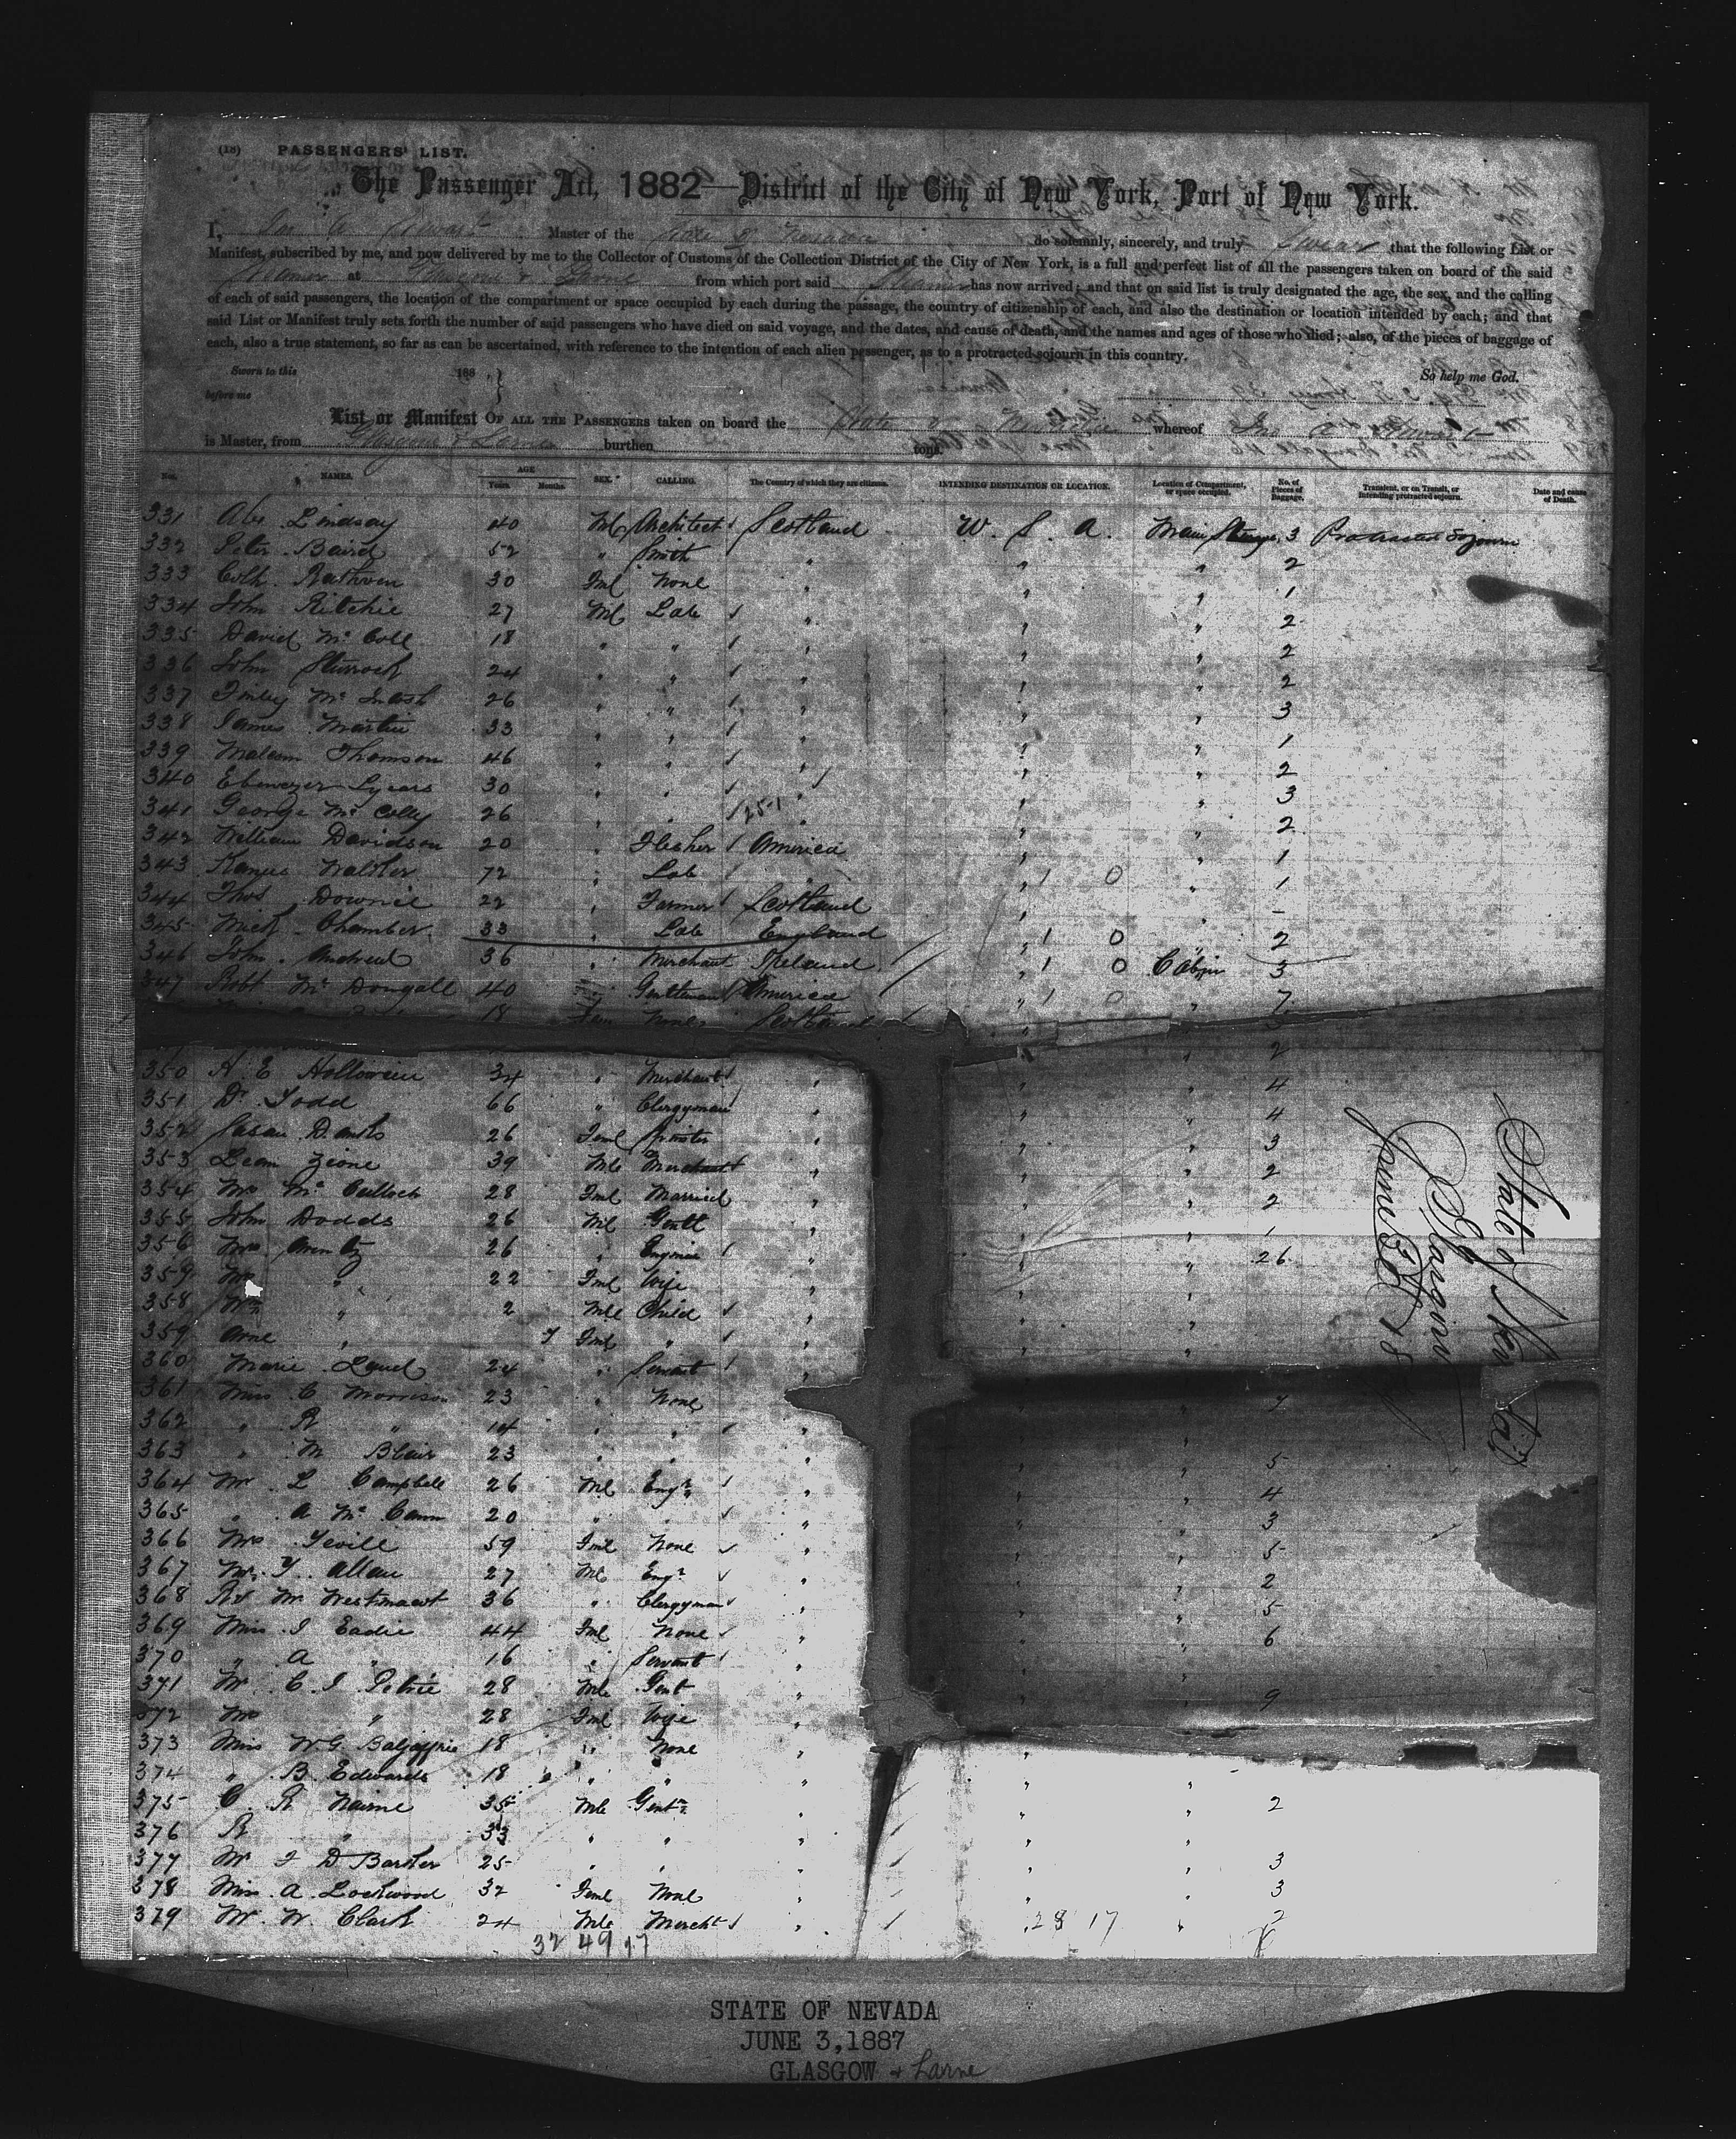 (18) PASSENGERS' LIST.
The Passenger Act, 1882—District of the City of New York, Port of New York.
I, Jno A Stewart Master of the State of Nevada do solemnly, sincerely, and truly Swear that the following List or
Manifest, subscribed by me, and now delivered by me to the Collector of Customs of the Collection District of the City of New York, is a full and perfect list of all the passengers taken on board of the said
Steamer at Glasgow & Larne from which port said Steamer has now arrived; and that on said list is truly designated the age, the sex, and the calling
of each of said passengers, the location of the compartment or space occupied by each during the passage, the country of citizenship of each, and also the destination or location intended by each; and that
said List or Manifest truly sets forth the number of said passengers who have died on said voyage, and the dates, and cause of death, and the names and ages of those who died; also, of the pieces of baggage of
each, also a true statement, so far as can be ascertained, with reference to the intention of each alien passenger, as to a protracted sojourn in this country.
Sworn to this 188 } So help me God.
before me
List or Manifest OF ALL THE PASSENGERS taken on board the State of Nevada whereof Jno A Stewart
is Master, from Glasgow & Larne burthen tons.
No. NAMES. AGE Years. Months. SEX. CALLING. The Country of which they are citizens. INTENDING DESTINATION OR LOCATION. Location of Compartment, or space occupied. No. of Pieces of Baggage. Transient, or on Transit, or intending protracted sojourn. Date and cause of Death.
331 Alex Lindsay 40 Ml Architect Scotland U. S. A. Main Steerage 3 Protracted Sojourn
332 Peter Baird 52 " Smith " " " 2
333 Cath. Ruthven 30 Fml None " " 1
334 John Ritchie 27 Ml Lab " " " 2
335 David Mc Coll 18 " " " " " 2
336 John Sturrock 24 " " " " " 2
337 Finlay Mc Intosh 26 " " " " " 3
338 James Martin 33 " " " " " 1
339 Malcom Thomson 46 " " " " " 2
340 Ebenezer Lyears 30 " " " " " 3
341 George Mc Colly 26 " " " " " 2
342 William Davidson 20 " Flesher America " " 1
343 Walker 72 " Lab " 1 0 " 1
344 Thos Downie 22 " Farmer Scotland " " -
345 Mich Chamber 33 " Lab England " 1 0 " 2
346 John Andrew 36 " Merchant Ireland " 1 0 Cabin 3
347 Robt Mc Dougall 40 " Gentleman America " 1 0 " 7
18 None Scotland
2
350 A. E Holloween 34 " Merchant " " " 4
351 Dr Todd 66 " Clergyman " " " 4
352 Susan Danks 26 Fml Spinster " " " 3
353 Leon Zione 39 Mle Merchant " " " 2
354 Mrs Mc Culloch 28 Fml Married " " " 2
355 John Dodds 26 Ml Gentl " " " 1
356 26 " Engineer " " " 26
359 " 22 Fml Wife " " "
358 Wm " 2 Mle Child " " "
359 Arne " 7 Fml " " " "
360 Marie Laud 24 " Servant "
361 Miss C Morrison 23 " None " " 7
362 " R " 14 " " "
363 " M Blair 23 " " " " " 5
364 Mr L Campbell 26 Ml Engr " " " 4
365 " A Mc Cann 20 " " " " " 3
366 Mrs Yeville 59 Fml None " " " 5
367 Mr Y. Allan 27 Ml Engr " " " 2
368 Rv Mr Westmacot 36 " Clergyman " " " 5
369 Miss I Eadie 44 Fml None " " " 6
370 " A " 16 " Servant "
371 Mr C. I Petrie 28 Mle Gent " " " 9
372 Mrs " 28 Fml Wife "
373 Miss W. G. Balgaffrie 18 " None " "
374 " B. Edwards 18 " " " " "
375 C. R Nairne 35 Mle Gentn " " " 2
376 R " 33 " " " " "
377 Mr I D Barker 25 " " " " " 3
378 Miss A. Lockwood 32 Fml None " " " 3
379 Mr. W. Clark 24 Mle Mercht " " 28 17 " 2
32 49 17
State of Nevada
Glasgow
June 3d 1887
STATE OF NEVADA
JUNE 3,1887
GLASGOW & Larne